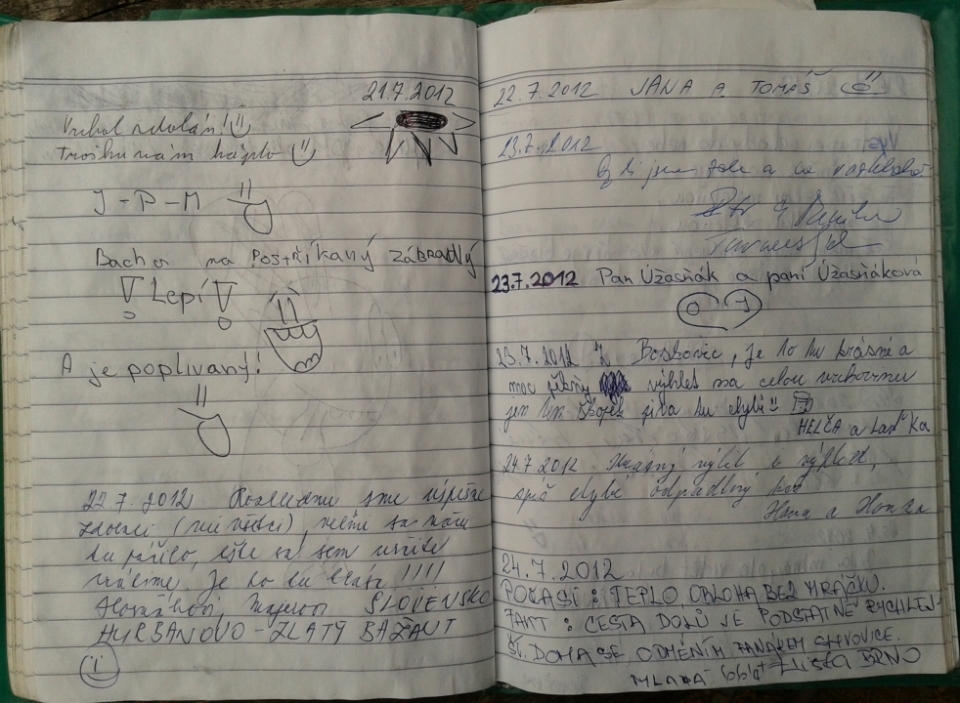 21.7.2012
Vrchol zdolán!
Trošku nám háplo
J-P-M
Bacha na POSTŘÍkaný zábradlý
! Lepí !
A je poplivaný!
22.7.2012 sme
(nie všetci),
tu páčilo, ešte sa sem určite
vrátime. Je to tu krása !!!!
SLOVENSKO
HURBANOVO-ZLATÝ BAŽANT
22.7.2012 JANA A TOMÁŠ
23.7.2012
Byli jsme zde a
Petr &
23.7.2012 Pan Úžasňák a paní Úžasňáková
O J
23.7.2012 Z Boskovic, je to tu krásné a
moc pěkný výhled na celou vrchovinu
jen ten piva tu chybí!!
HELČA a Laď'Ka
24.7.2012 výlet a výhled,
spíš chybí odpadkový koš
Hana a Honza
24.7.2012
POČASÍ: TEPLO OBLOHA BEZ MRÁČKU.
FAKT: CESTA DOLŮ JE PODSTATNĚ RYCHLEJ-
ŠÍ. DOMA SE ODMĚNÍM PANÁKEM SLIVOVICE.
MLADÁ BRNO